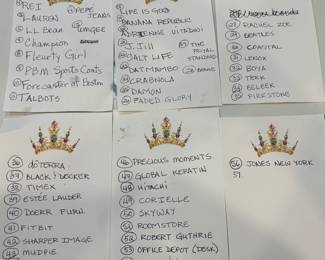 REI
LAUREN
JEANS
LL Bean
UMGEE
Champion
Fleurty Girl
PBM Sports Coats
Forecaster of Boston
TALBOTS
LIFE IS GOOD
BANANA REPUBLIC
ADRIENNE VITTADINI
J. Jill
THE ROYAL STANDARD
SALT LIFE
DAT MAMBO
CRABNOLA
DAMON
FADED GLORY
27 RACHEL ZOE
29 BEATLES
30 COASTAL
31 LENOX
32 BOYA
33 TEKK
34 BELEEK
35 FIRESTONE
36 doTERRA
37 BLACK & DECKER
38 TIMEX
39 ESTÉE LAUDER
40 DOERR FURN.
41 FITBIT
42 SHARPER IMAGE
43 MUDPIE
46 PRECIOUS MOMENTS
47 GLOBAL KERATIN
48 HITACHI
49 CORIELLE
50 SKYWAY
51 ROOMSTORE
52 ROBERT GUTHRIE
53 OFFICE DEPOT (DESK)
56 JONES NEW YORK
57.